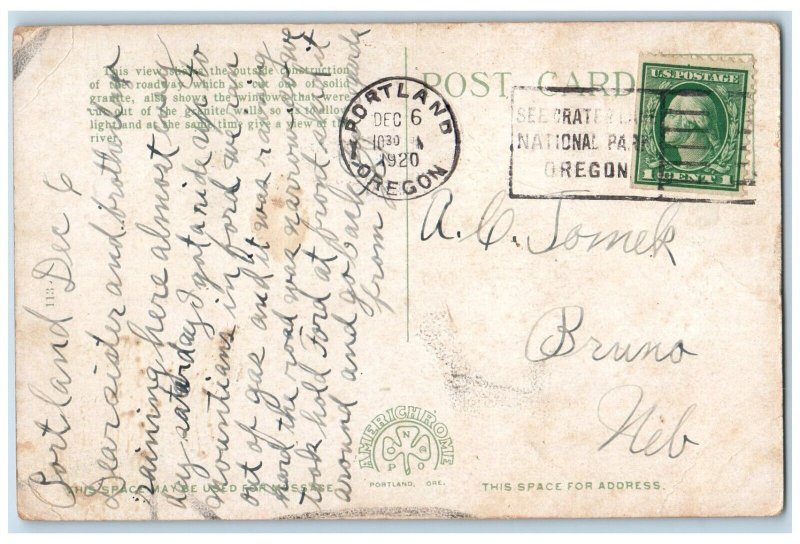 This view shows the outside construction
of the roadway which is cut out of solid
granite, also shows the windows that were
cut out of the granite walls so as to allow
light and at the same time give a view of the
river.
113
Portland Dec 6
Dear sister and brother am
raining here almost every
day saturday I got a ride up to
mountians in ford we run
out of gas and it was raining
hard the road was narrow we
took hold Ford at front swung it
around and go back
from
THIS SPACE MAY BE USED FOR MESSAGE.
POST CARD
PORTLAND
DEC 6
1030 A
1920
OREGON
SEE CRATER LAKE
NATIONAL PARK
OREGON
U.S. POSTAGE
1 CENT 1
A. C. Tomek
Bruno
Neb
AMERICHROME
PORTLAND, ORE.
THIS SPACE FOR ADDRESS.